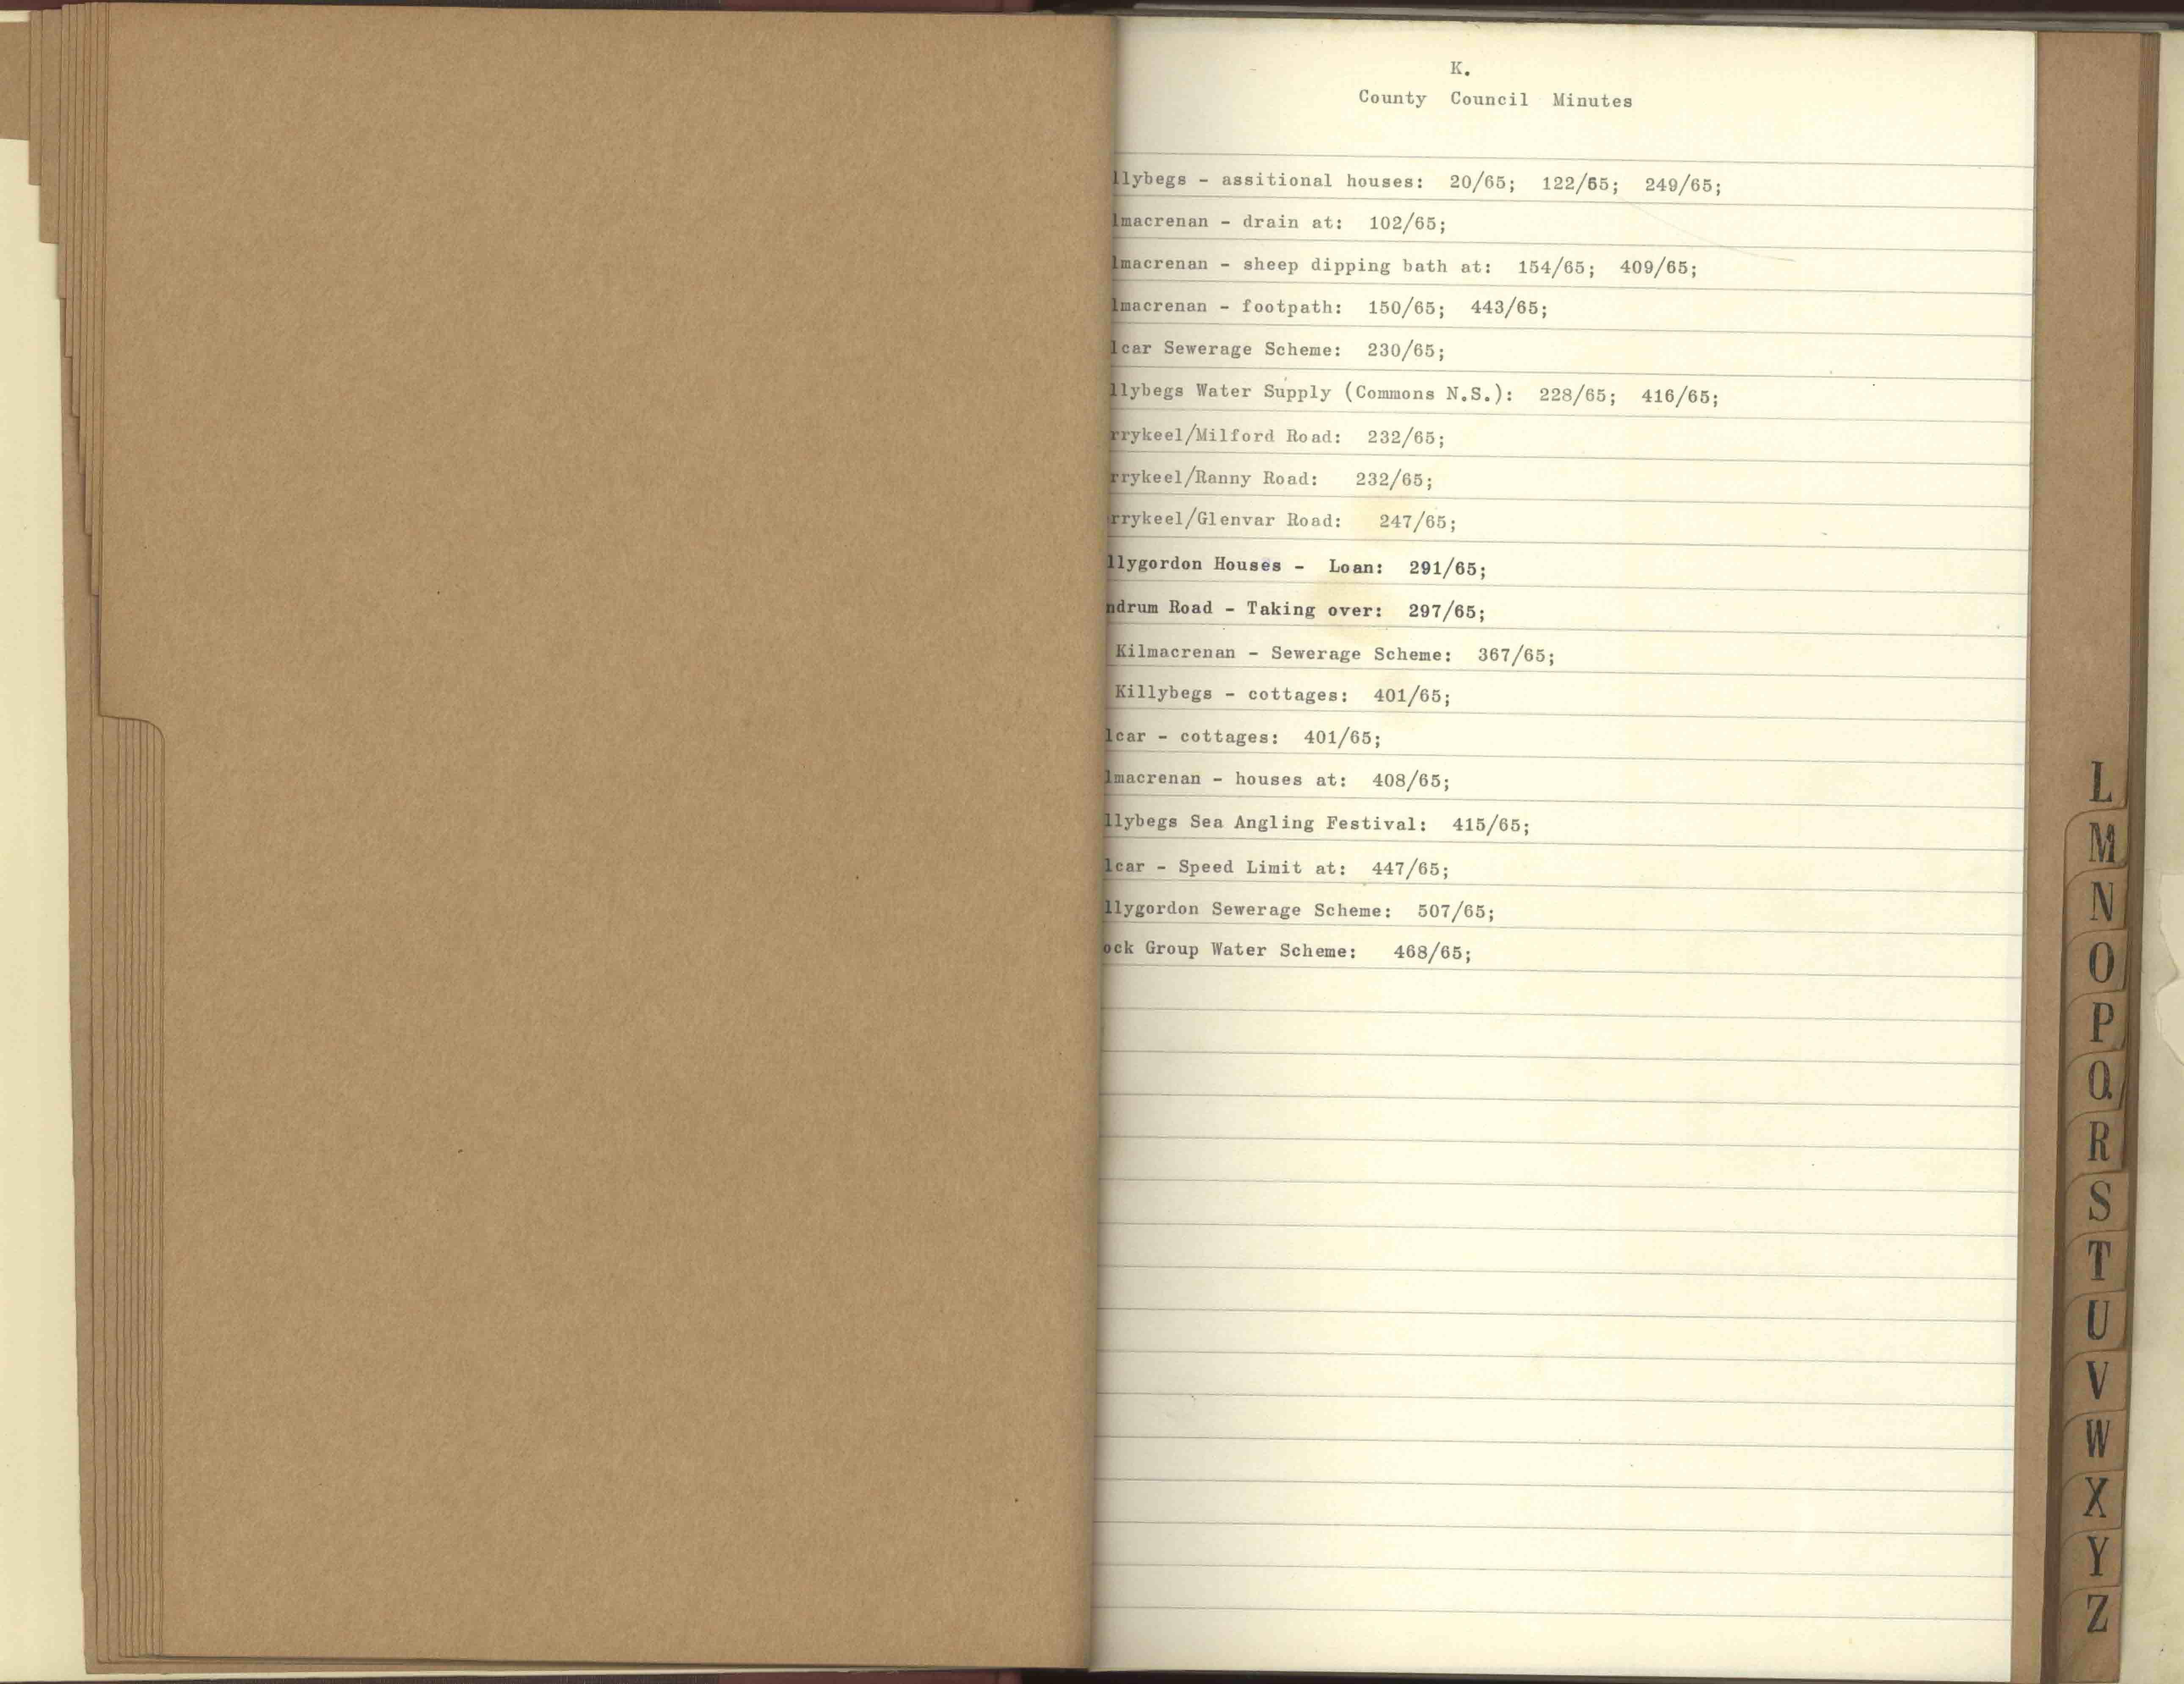 K.
County Council Minutes
llybegs - assitional houses: 20/65; 122/65; 249/65;
lmacrenan - drain at: 102/65;
lmacrenan - sheep dipping bath at: 154/65; 409/65;
lmacrenan - footpath: 150/65; 443/65;
lcar Sewerage Scheme: 230/65;
llybegs Water Supply (Commons N.S.): 228/65; 416/65;
rrykeel/Milford Road: 232/65;
rrykeel/Ranny Road: 232/65;
rrykeel/Glenvar Road: 247/65;
llygordon Houses - Loan: 291/65;
ndrum Road - Taking over: 297/65;
Kilmacrenan - Sewerage Scheme: 367/65;
Killybegs - cottages: 401/65;
lcar - cottages: 401/65;
lmacrenan - houses at: 408/65;
llybegs Sea Angling Festival: 415/65;
lcar - Speed Limit at: 447/65;
llygordon Sewerage Scheme: 507/65;
ock Group Water Scheme: 468/65;
L
M
N
O
P
Q
R
S
T
U
V
W
X
Y
Z